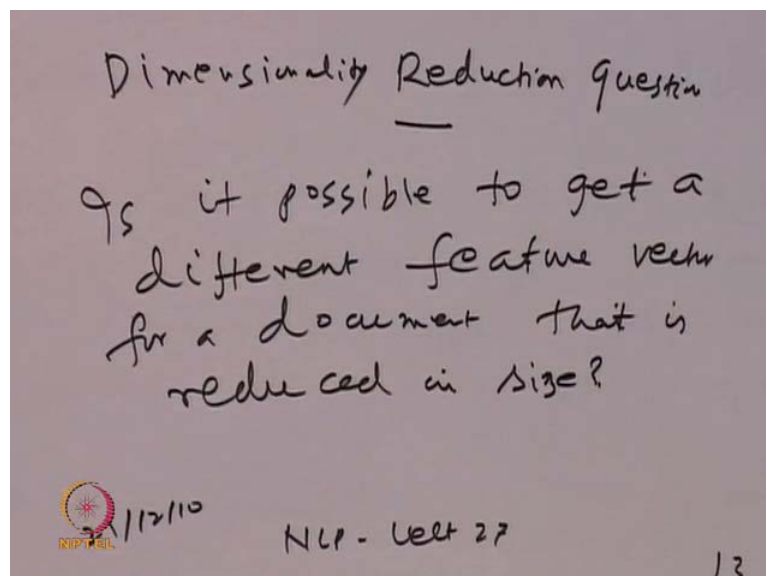 Dimensionality Reduction Question
Is it possible to get a
different feature vector
for a document that is
reduced in size?
/12/10
NPTEL
NLP - Lect 27
12